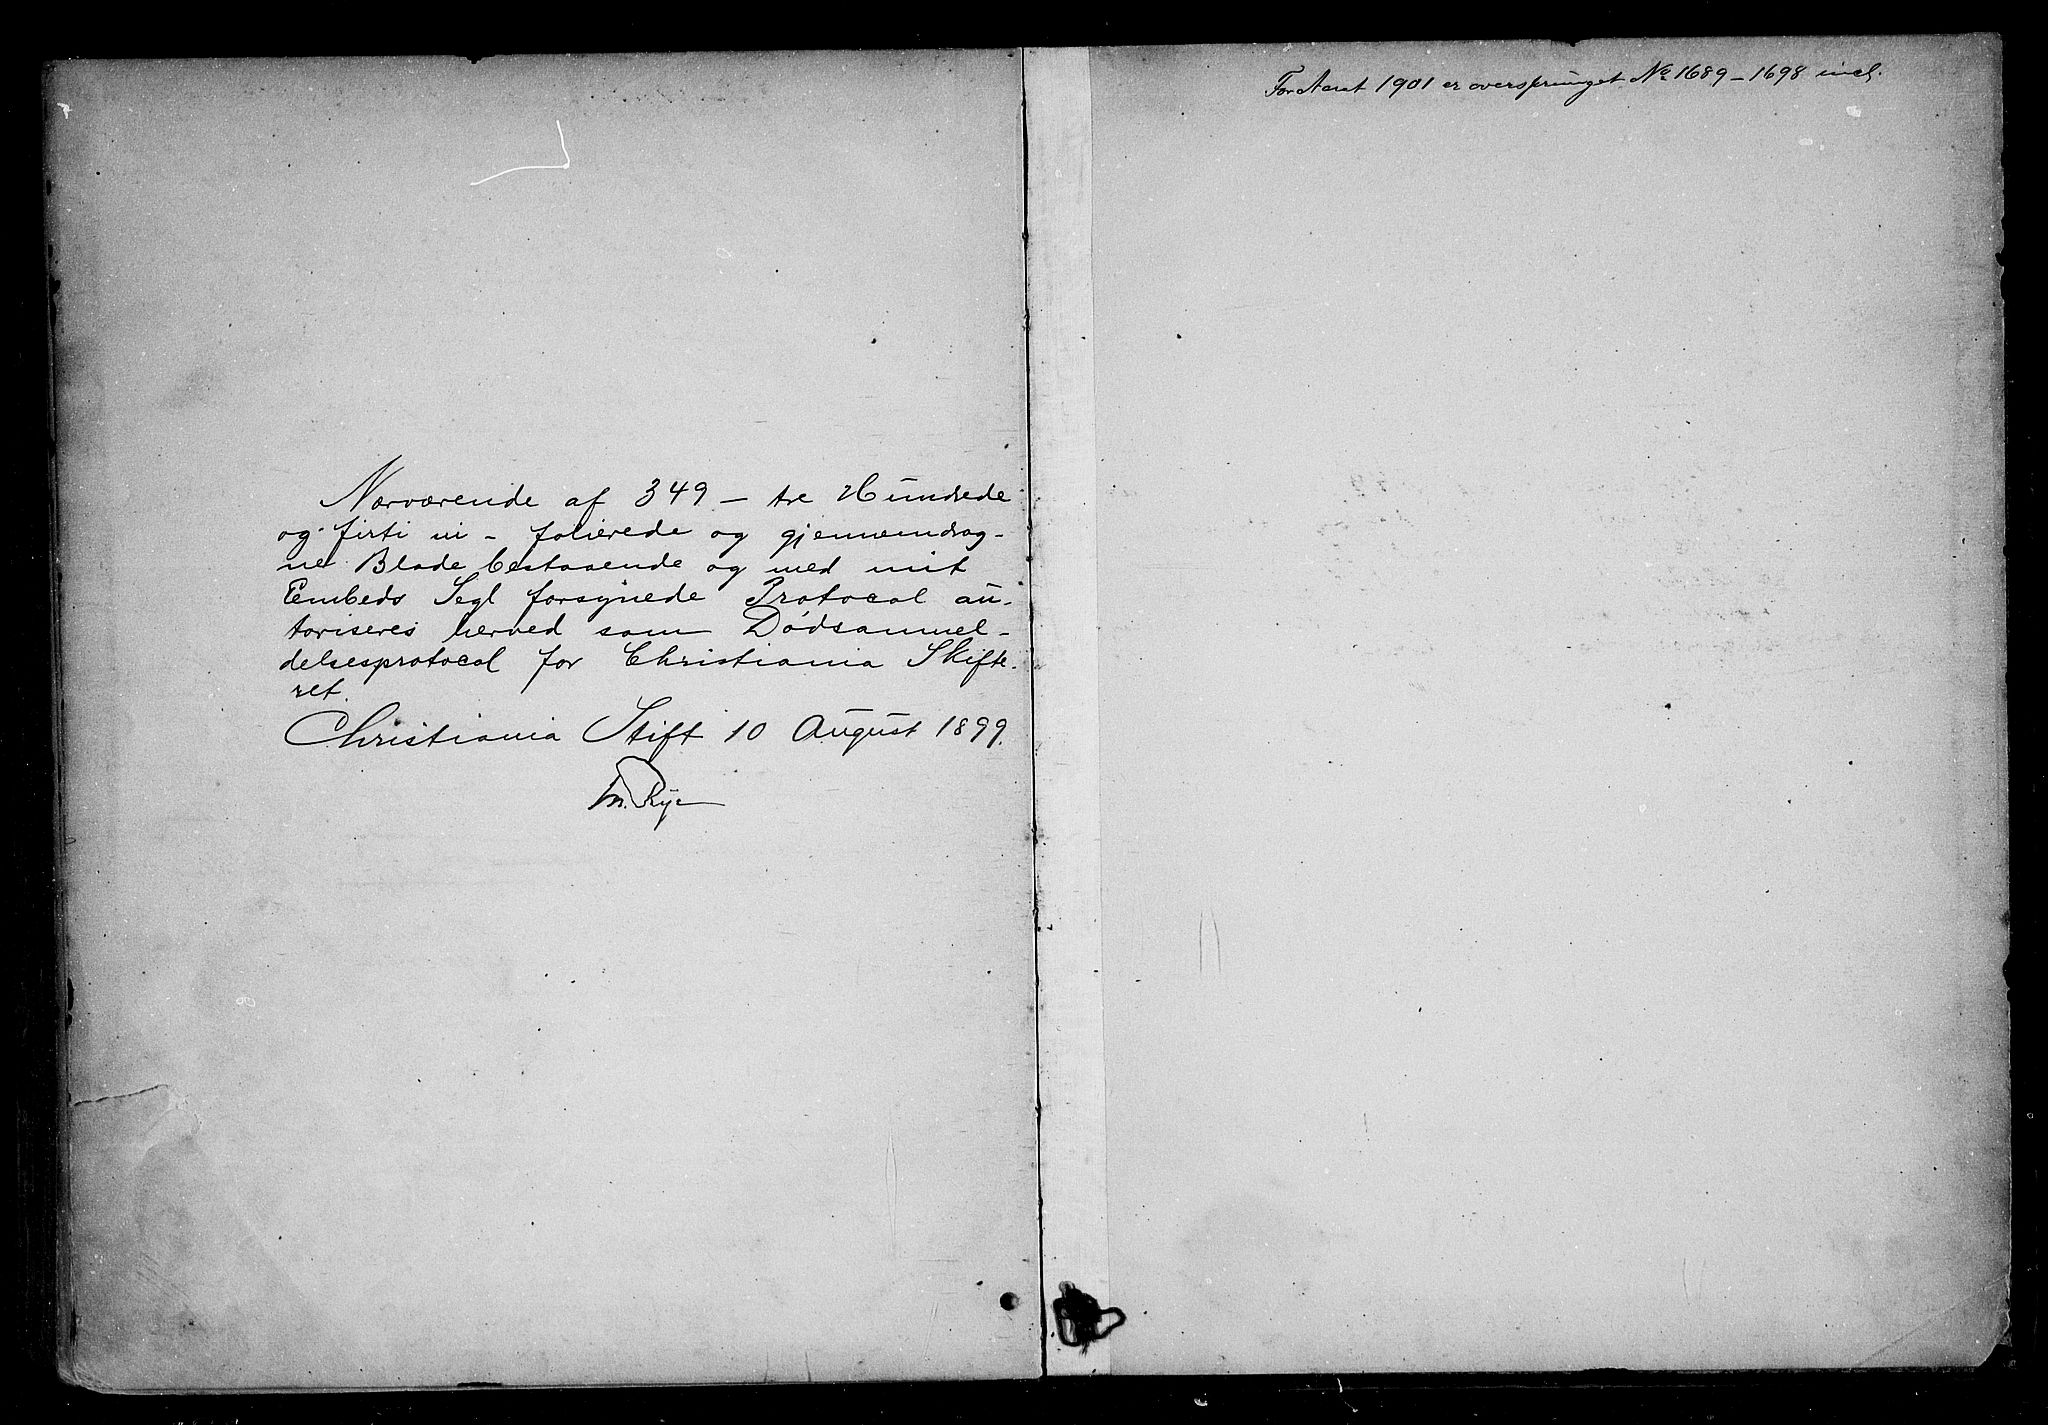 Nærværende af 349 – tre Hundrede
og firti ni – folierede og gjennemdrag-
ne Blade bestaaende og med mit
Embeds Segl forsynede Protocol au-
toriseres herved som Dødsanmel-
delsesprotocol for Christiania Skifte-
ret.
Christiania Stift 10 August 1899.
Rye
For Aaret 1901 er oversprunget No 1689 – 1698 incl.